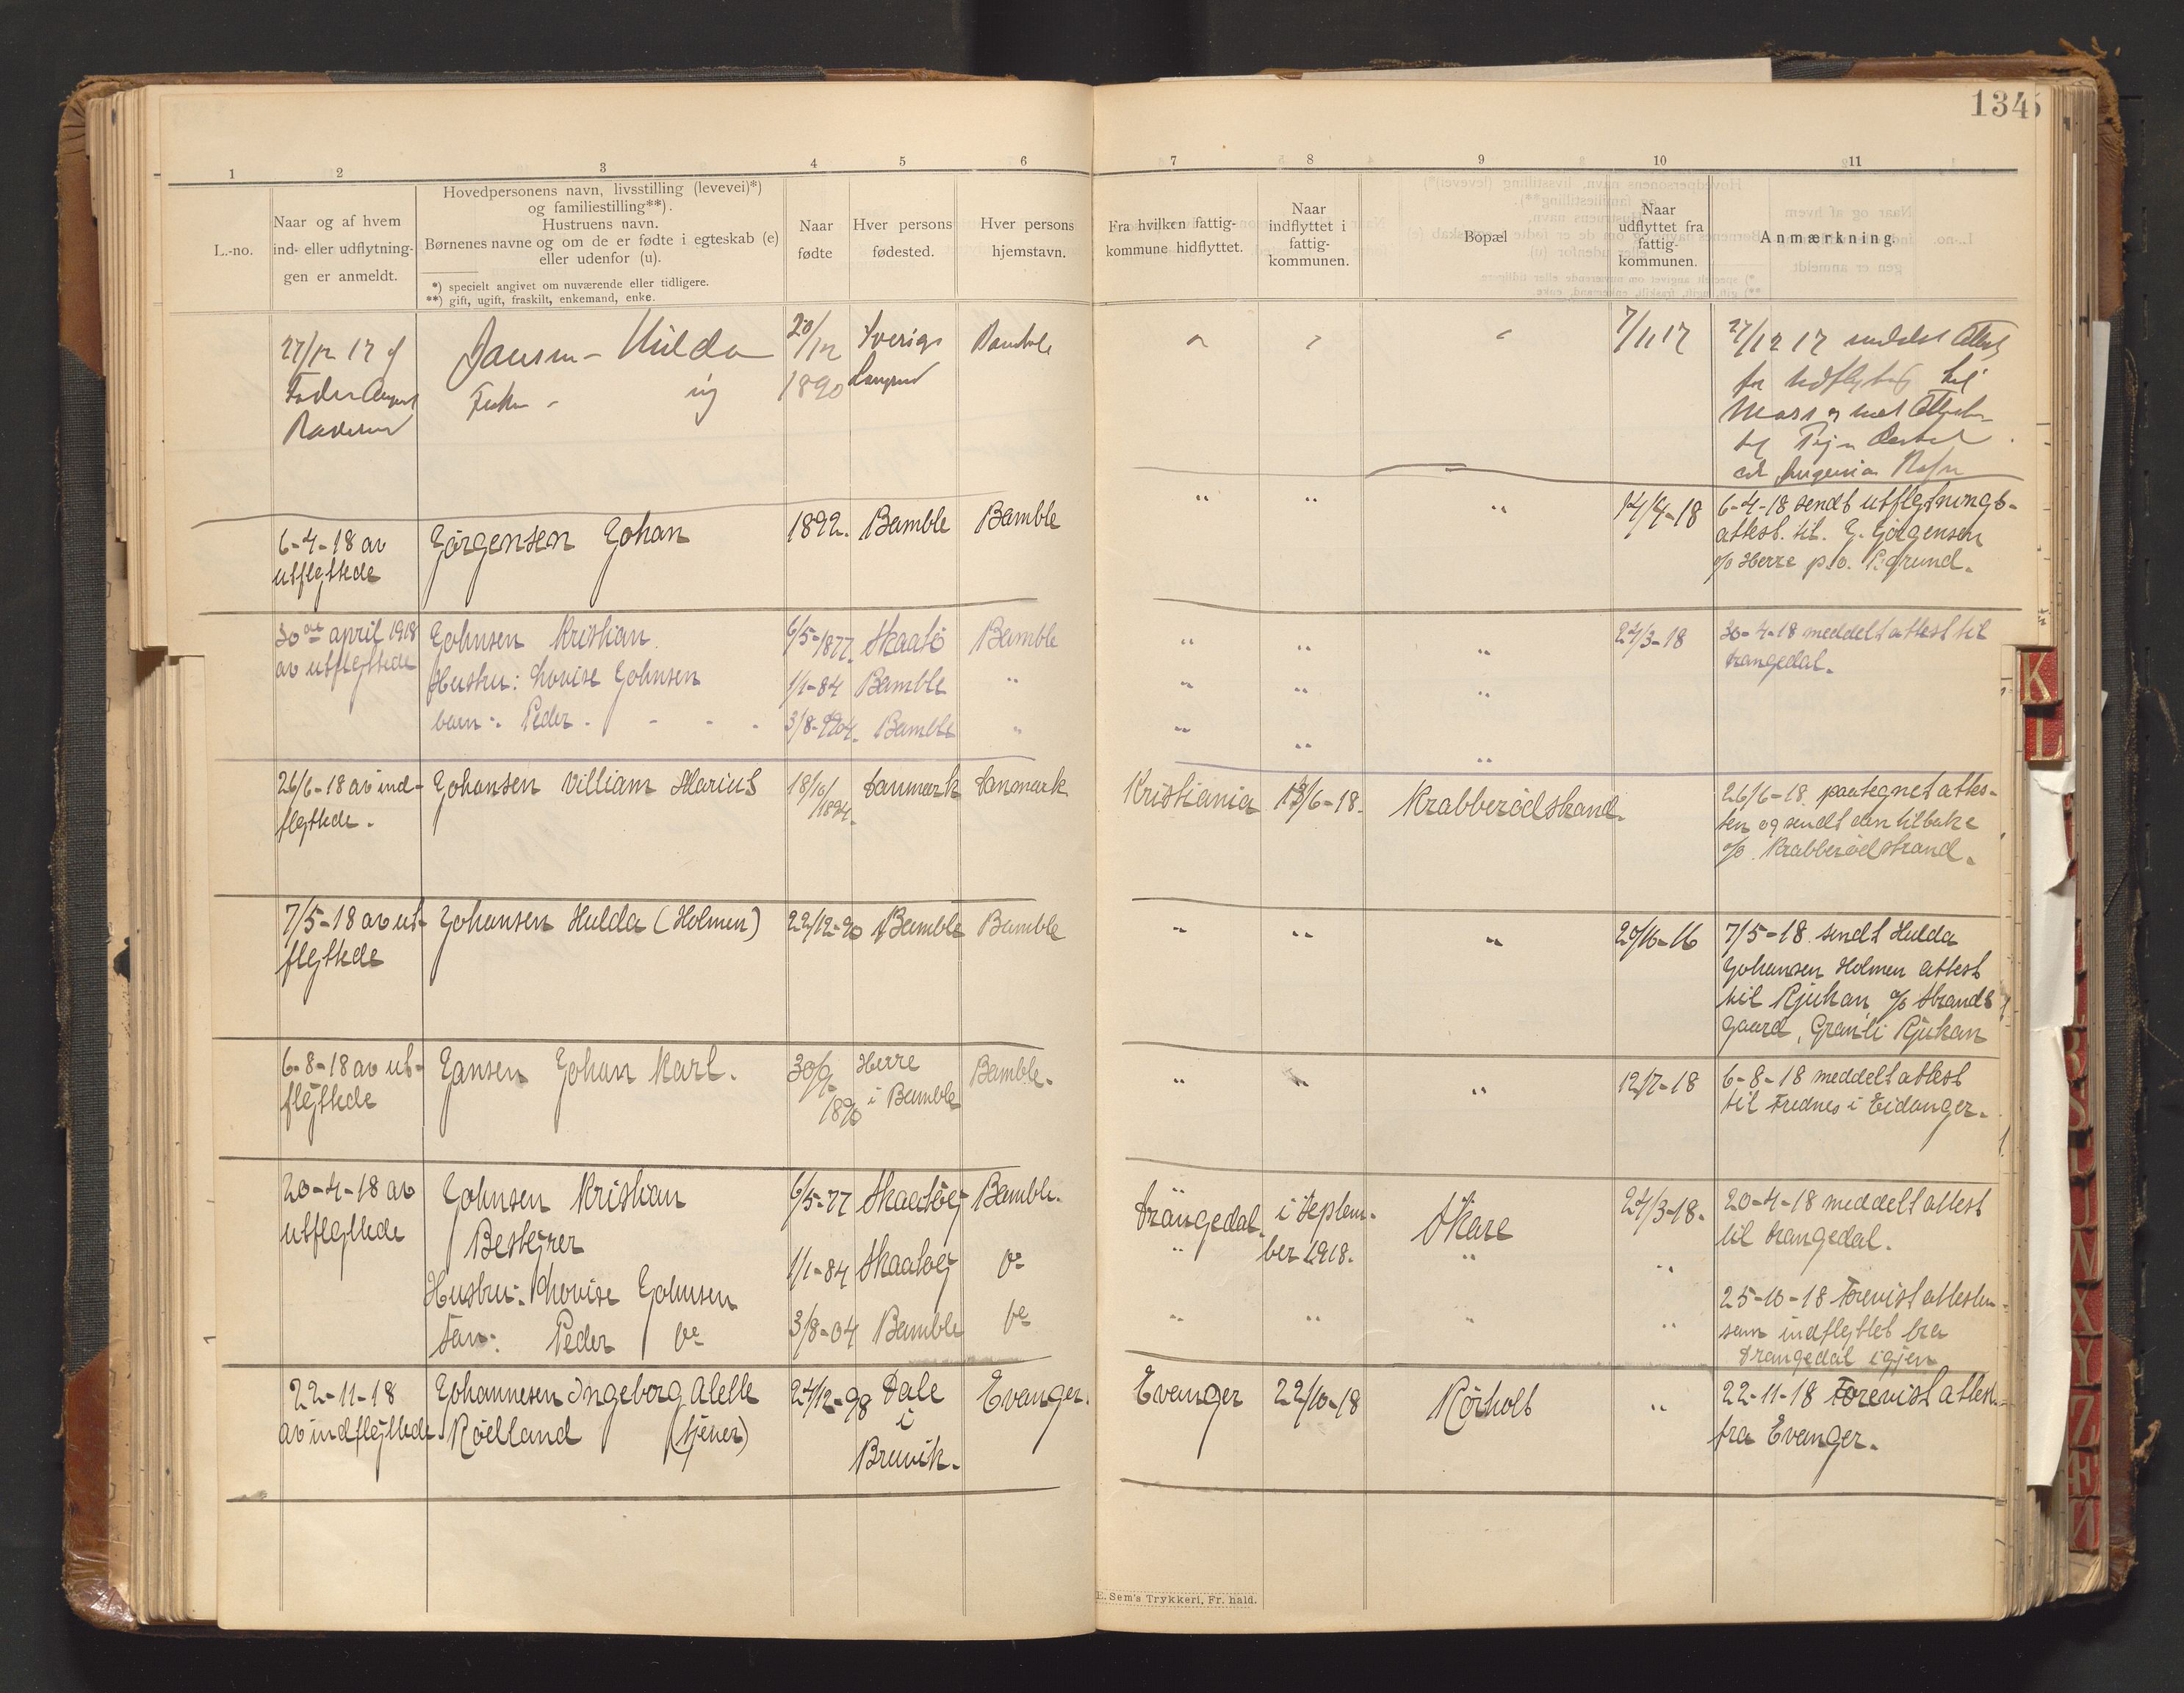 134
1 2 3 4 5 6 7 8 9 10 11
L.-no.
Naar og af hvem
ind- eller udflytnin-
gen er anmeldt.
Hovedpersonens navn, livsstilling (levevei)*)
og familiestilling**).
Hustruens navn.
Børnenes navne og om de er fødte i egteskab (e)
eller udenfor (u).
*) specielt angivet om nuværende eller tidligere.
**) gift, ugift, fraskilt, enkemand, enke.
Naar
fødte
Hver persons
fødested.
Hver persons
hjemstavn.
Fra hvilken fattig-
kommune hidflyttet.
Naar
indflyttet i
fattig-
kommunen.
Bopæl
Naar
udflyttet fra
fattig-
kommunen.
Anmærkning.
27/12 17 af
Jansen - Hilda
20/12
1890
Sverige
Bamble
7/11 17
27/12 17 meddelt Attest
for Udflytt til
Moss
6-4-18 av
utflyttede
Jörgensen Johan
1892.
Bamble
Bamble
" " "
14/4-18
6-4-18 sendt utflytnings-
attest. til. J. Jörgensen
o/o Herre p.o. P.grund.
30te april 1918
av utflyttede
Johnsen Kristian.
6/5-1877.
Skaatö
Bamble
" " "
24/3-18
30-4-18 meddelt attest til
Drangedal.
Hustru: Lovise Johnsen
1/1-84
Bamble
" " " "
barn: Peder. - - .
3/8-1904.
Bamble
" " " "
26/6-18 av ind-
flyttede.
Johansen Villiam Marius
18/10/
1894.
Danmark
Danmark
Kristiania
13/6-18.
Krabberödstrand.
26/6-18. paategnet attes-
ten og sendt den tilbake
o/o. Krabberödstrand.
7/5-18 av ut-
flyttede
Johansen Hulda (Holmen)
22/12-90
Bamble
Bamble
" " "
20/6-16
7/5-18. sendt Hulda
Johansen Holmen attest
til Rjukan, o/o Strands
gaard, Granli Rjukan
6-8-18 av ut-
flyttede
Jansen Johan Karl.
Herre
i Bamble
Bamble.
" " "
12/7-18
6-8-18 meddelt attest
til Frednes i Eidanger.
20-4-18 av
utflyttede
Johnsen Kristian
Bestyrer
6/5-77
Skaatöy
Bamble.
Drangedal.
i Septem-
ber 1918.
Skare
24/3-18.
20-4-18 meddelt attest
til Drangedal.
Hustru: Lovise Johnsen
1/1-84
Skaatöy
" " "
Sön: Peder
3/8-04
Bamble
" " " "
25-10-18 Forevist attesten
som indflyttet fra
Drangedal igjen
22-11-18
av indflyttede
Johannesen Ingeborg Alette
Röelland (tjener)
24/12-98
Dale
i
Bruvik.
Evanger.
Evanger
22/10-18
Rörholt
"
22-11-18 Forevist attest.
fra Evanger.
E. Sem's Trykkeri, Fr. hald.
K
L
R
S
U
X
Y
Z
Æ
Ø